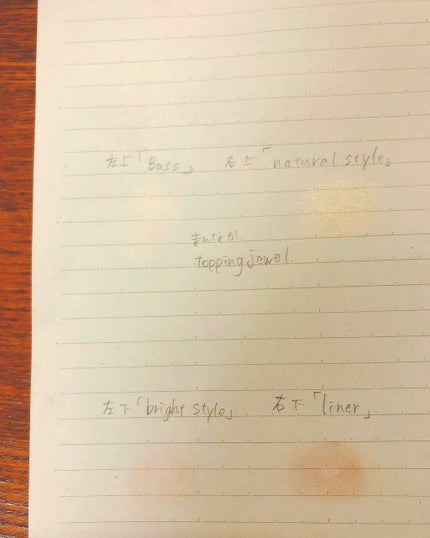 左上「Bass」 右上「natural style」
まんなか
topping jewel
左下「bright style」 右下「liner」